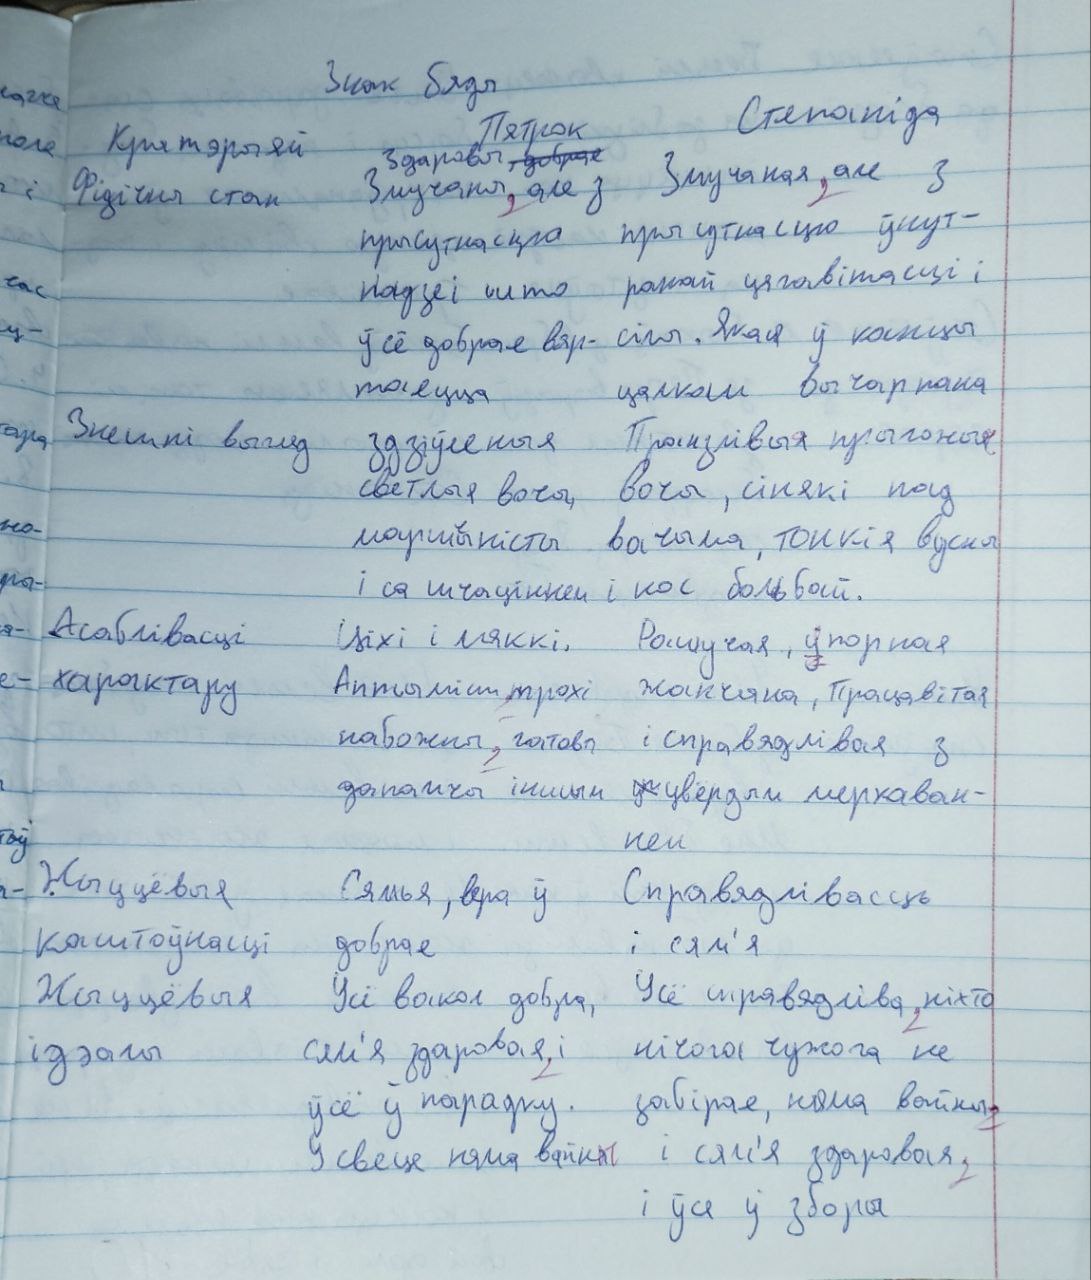 Знак бяды
Крытэрыяй Пятрок Степаніда
Здаровы, добрае
Фізічны стан Змучаны, але з Змучаная, але з
прысутнасцю прысутнасцю ўнут-
надзеі што ранай цягавітасці і
ўсё добрае вяр- сілы. Якая ў канцы
таецца цалкам вычарпана
Знешні выгляд здзіўленыя Пранзлівыя прыгожыя
светлыя вочы, вочы, сінякі пад
маршчыністы вачыма, тонкія вусны
і са шчаціннем і нос бульбай.
Асаблівасці Ціхі і мяккі. Рашучая, ўпорная
характару Аптыміст, трохі жанчына, Працавітая
набожны, гатовы і справядлівая з
дапамчы іншым цвёрдым меркаван-
нем
Жыццёвыя Сямья, вера ў Справядлівасць
каштоўнасці добрае і сям'я
Жыццёвыя Усё вакол добра, Усё справядліва, ніхто
ідэалы сям'я здаровая, і нічога чужога не
ўсё ў парадку. забірае, няма вайны,
У свеце няма вайны і сям'я здаровая,
і ўся ў зборы
час